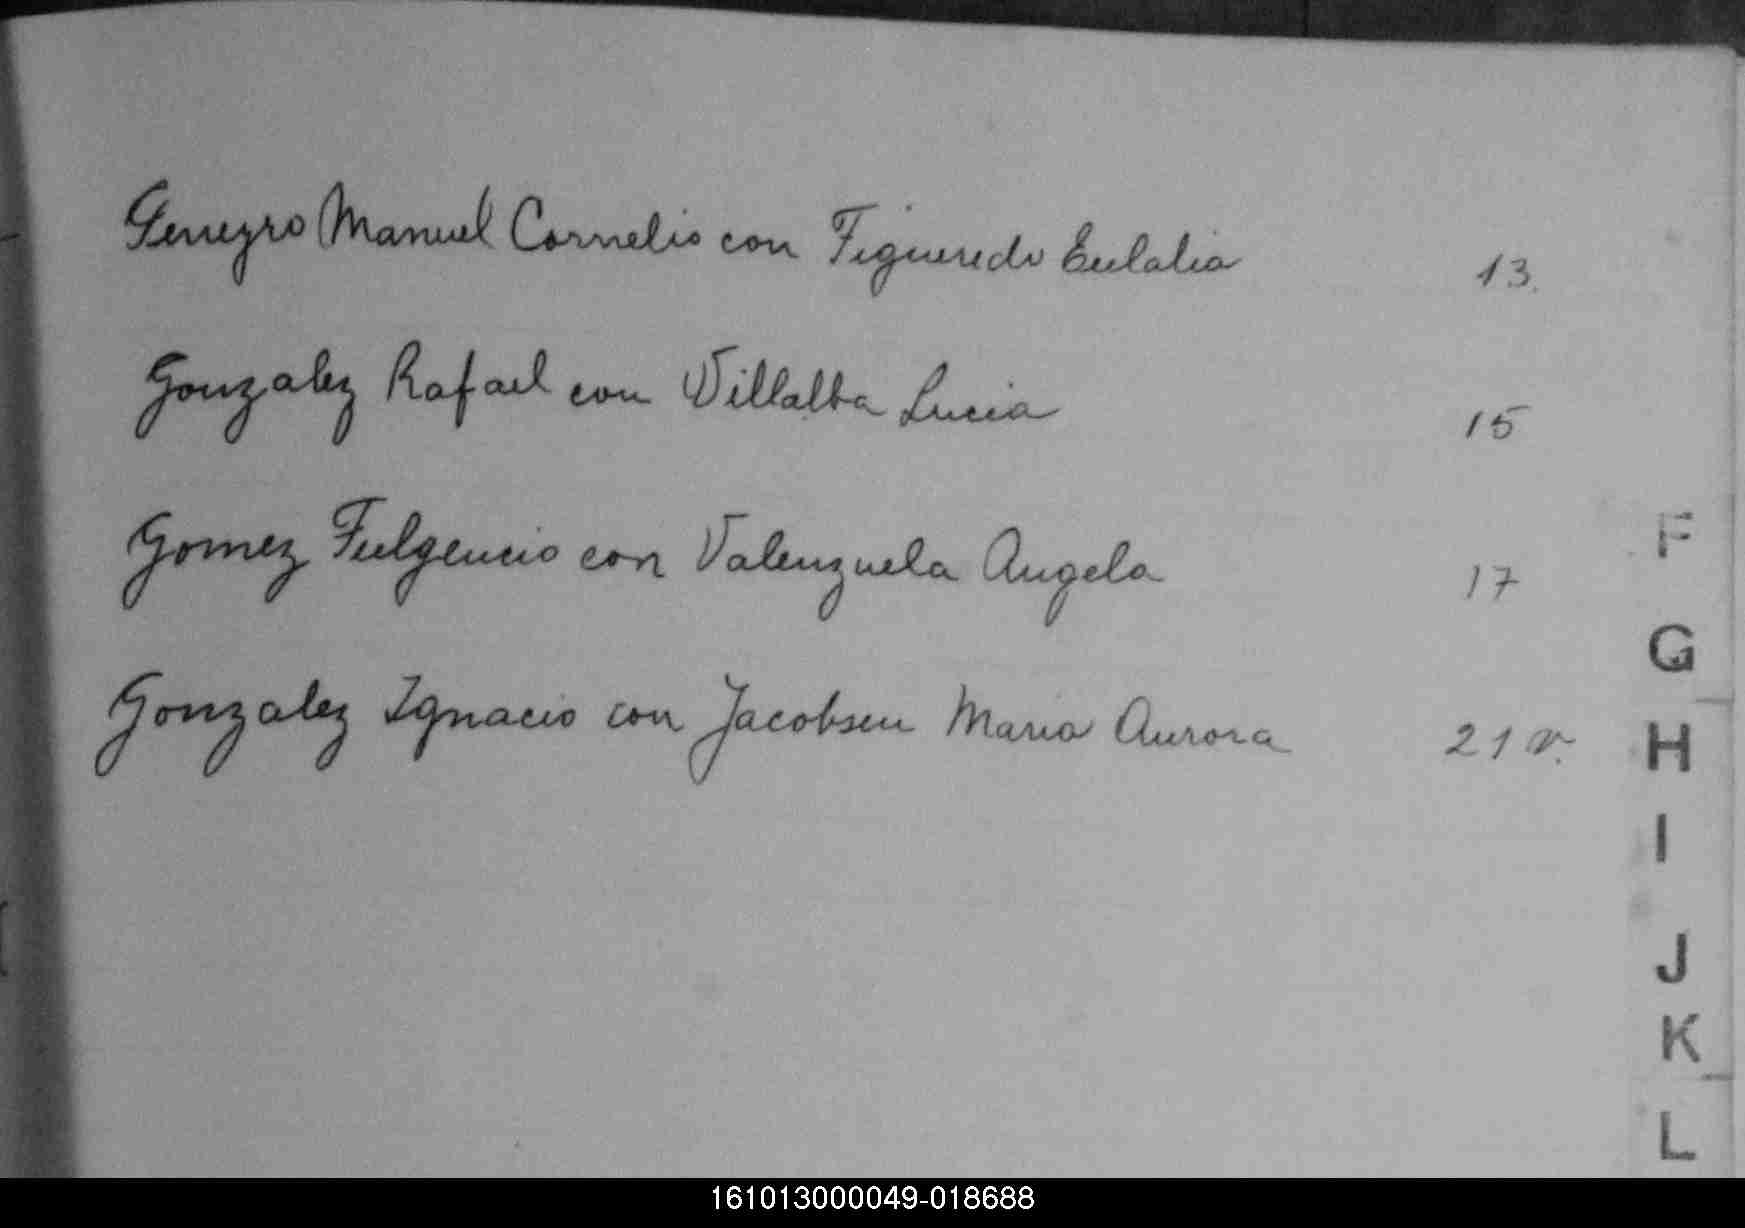 Geneyro Manuel Cornelio con Figueredo Eulalia 13.
Gonzalez Rafael con Villalba Lucia 15
Gomez Fulgencio con Valenzuela Angela 17
Gonzalez Ignacio con Jacobsen Maria Aurora 21 v.
F
G
H
I
J
K
L
161013000049-018688